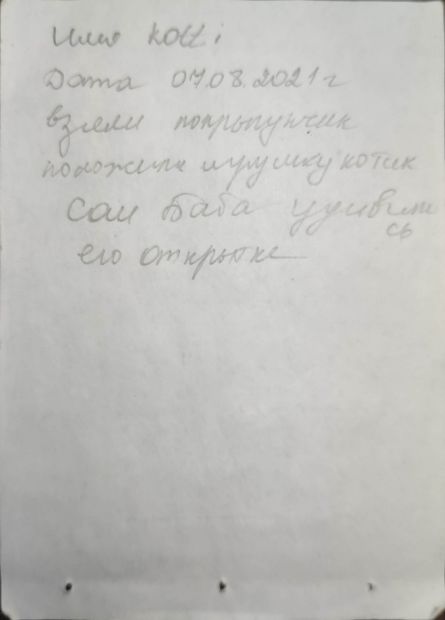 Имя Kotti
Дата 07.08.2021 г
взяли попрыгунчик
положили игрушку котик
Саи Баба удивили
сь
его открытке